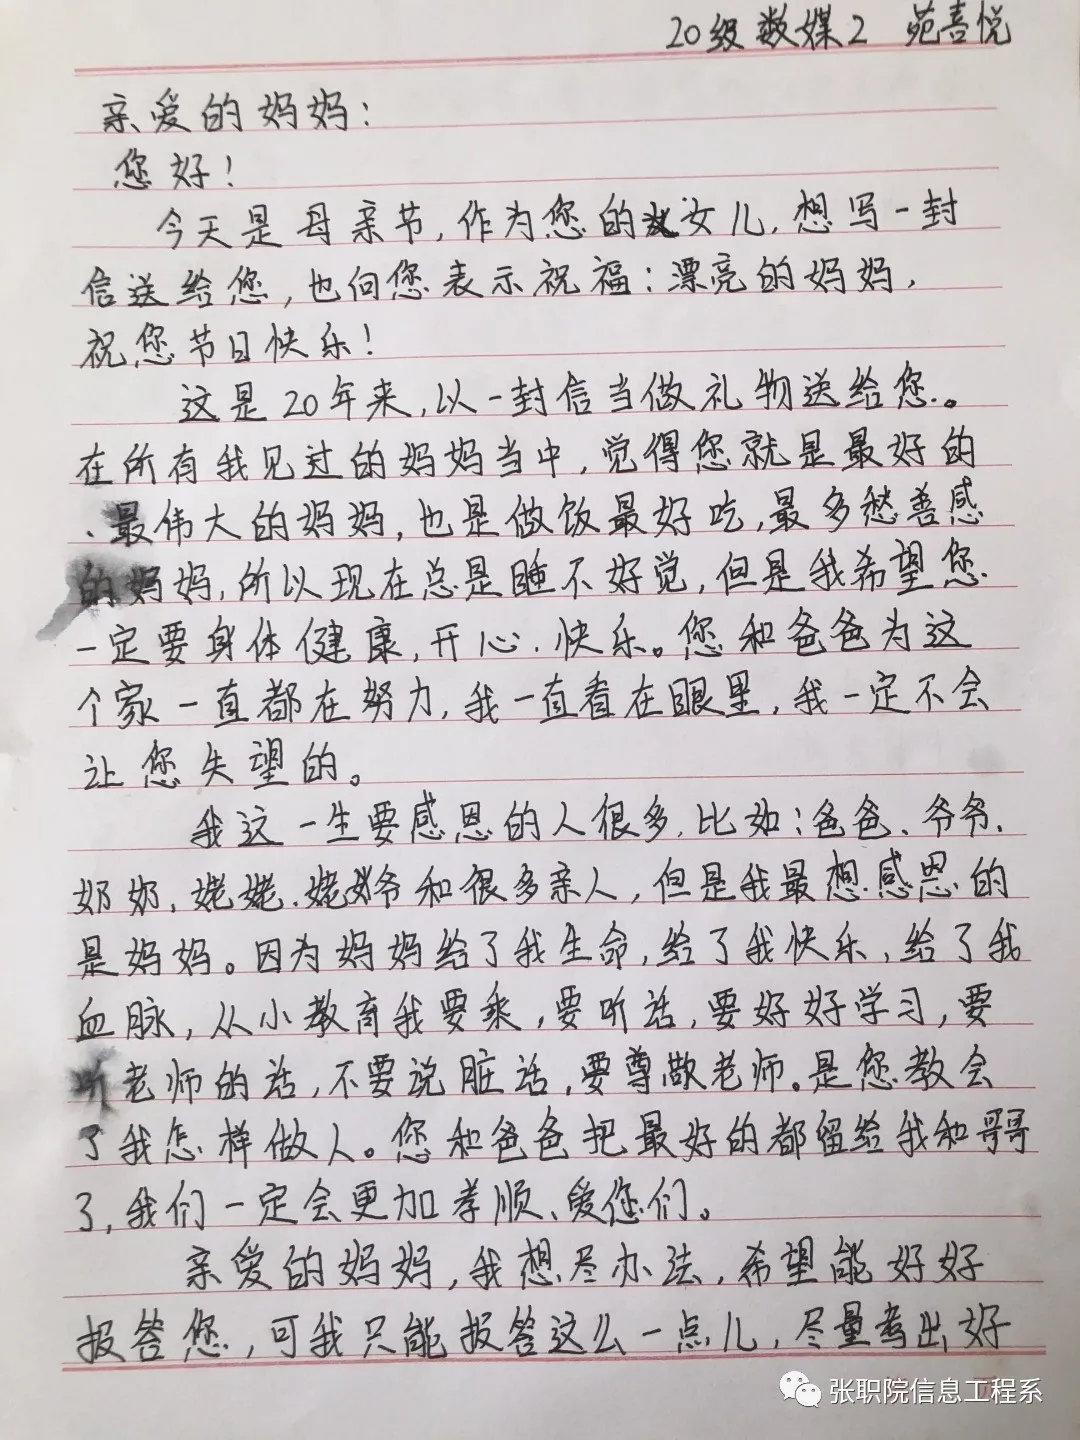 20级数媒2 苑喜悦
亲爱的妈妈：
您好！
今天是母亲节，作为您的女儿，想写一封
信送给您，也向您表示祝福：漂亮的妈妈，
祝您节日快乐！
这是20年来，以一封信当做礼物送给您。
在所有我见过的妈妈当中，觉得您就是最好的
、最伟大的妈妈，也是做饭最好吃，最多愁善感
的妈妈，所以现在总是睡不好觉，但是我希望您
一定要身体健康，开心、快乐。您和爸爸为这
个家一直都在努力，我一直看在眼里，我一定不会
让您失望的。
我这一生要感恩的人很多，比如：爸爸、爷爷、
奶奶，姥姥、姥爷和很多亲人，但是我最想感恩的
是妈妈。因为妈妈给了我生命，给了我快乐，给了我
血脉，从小教育我要乖，要听话，要好好学习，要
听老师的话，不要说脏话，要尊敬老师。是您教会
了我怎样做人。您和爸爸把最好的都留给我和哥哥
了，我们一定会更加孝顺、爱您们。
亲爱的妈妈，我想尽办法，希望能好好
报答您，可我只能报答这么一点儿，尽量考出好
张职院信息工程系